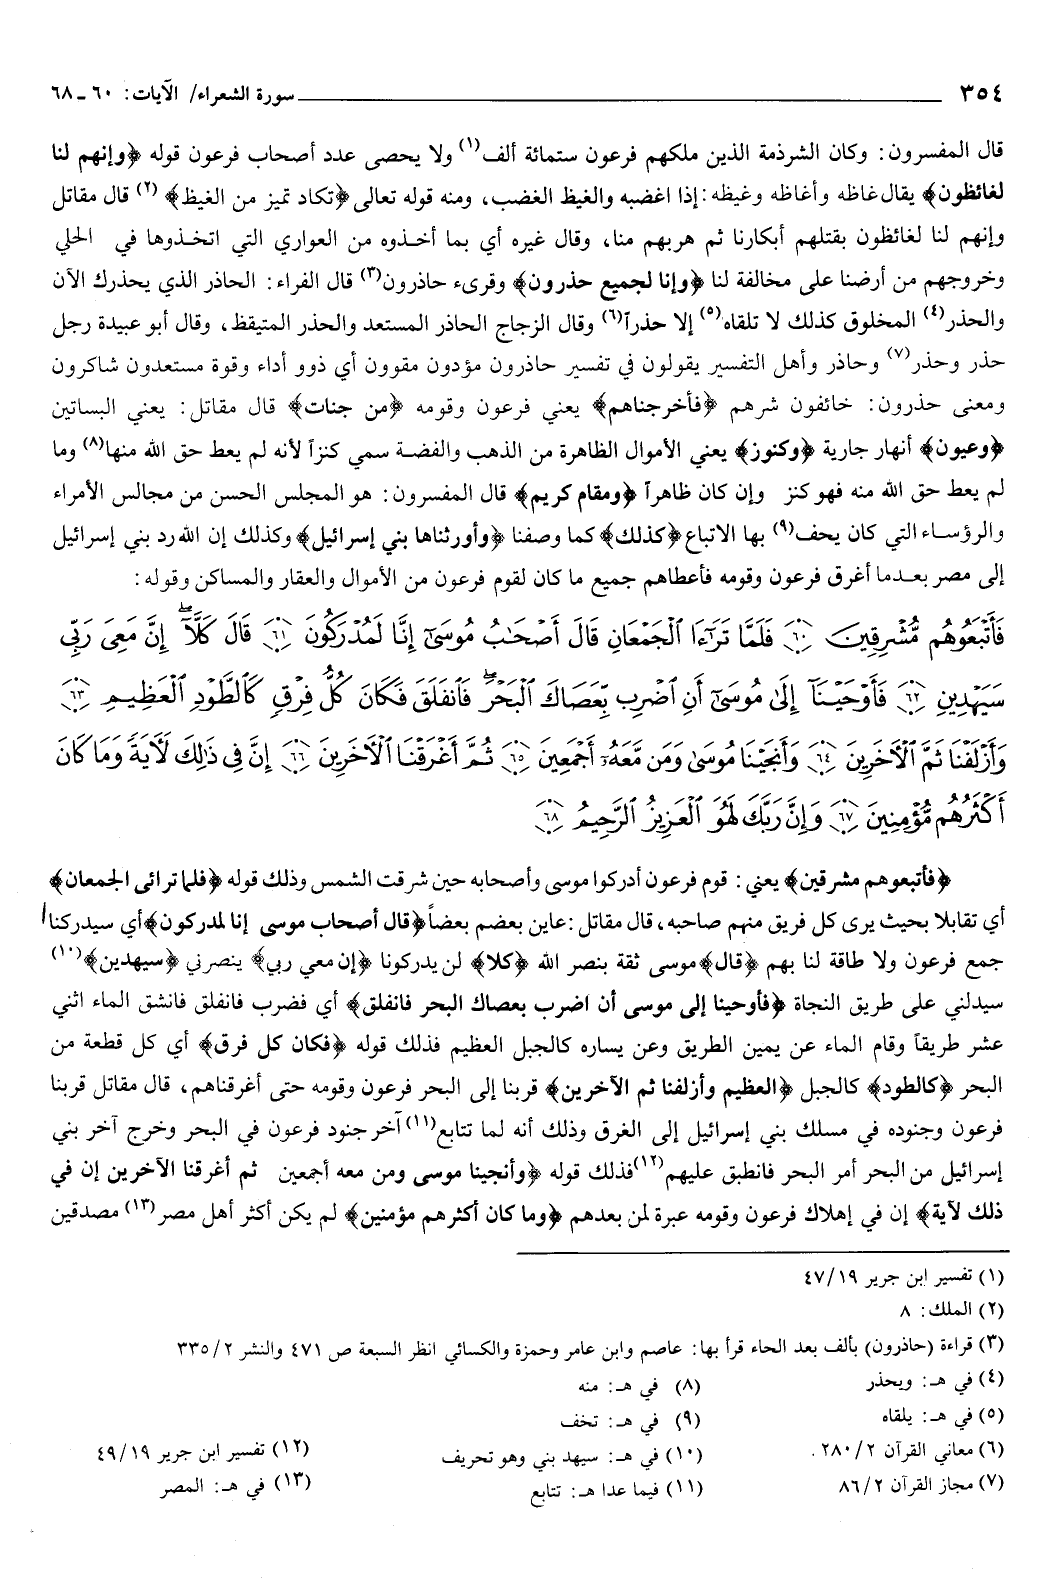 ٣٥٤ سورة الشعراء/ الآيات: ٦٠ ـ ٦٨
قال المفسرون: وكان الشرذمة الذين ملكهم فرعون ستمائة ألف(١) ولا يحصى عدد أصحاب فرعون قوله ﴿وإنهم لنا
لغائظون﴾ يقال غاظه وأغاظه وغيظه: إذا اغضبه والغيظ الغضب، ومنه قوله تعالى ﴿تكاد تميز من الغيظ﴾ (٢) قال مقاتل
وإنهم لنا لغائظون بقتلهم أبكارنا ثم هربهم منا، وقال غيره أي بما أخذوه من العواري التي اتخذوها في الحلي
وخروجهم من أرضنا على مخالفة لنا ﴿وإنا لجميع حذرون﴾ وقرىء حاذرون(٣) قال الفراء: الحاذر الذي يحذرك الآن
والحذر(٤) المخلوق كذلك لا تلقاه(٥) إلا حذراً(٦) وقال الزجاج الحاذر المستعد والحذر المتيقظ، وقال أبو عبيدة رجل
حذر وحذر(٧) وحاذر وأهل التفسير يقولون في تفسير حاذرون مؤدون مقوون أي ذوو أداء وقوة مستعدون شاكرون
ومعنى حذرون: خائفون شرهم ﴿فأخرجناهم﴾ يعني فرعون وقومه ﴿من جنات﴾ قال مقاتل: يعني البساتين
﴿وعيون﴾ أنهار جارية ﴿وكنوز﴾ يعني الأموال الظاهرة من الذهب والفضة سمي كنزاً لأنه لم يعط حق الله منها(٨) وما
لم يعط حق الله منه فهو كنز وإن كان ظاهراً ﴿ومقام كريم﴾ قال المفسرون: هو المجلس الحسن من مجالس الأمراء
والرؤساء التي كان يحف(٩) بها الاتباع ﴿كذلك﴾ كما وصفنا ﴿وأورثناها بني إسرائيل﴾ وكذلك إن الله رد بني إسرائيل
إلى مصر بعدما أغرق فرعون وقومه فأعطاهم جميع ما كان لقوم فرعون من الأموال والعقار والمساكن وقوله:
فَأَتْبَعُوهُم مُّشْرِقِينَ ٦٠ فَلَمَّا تَرَٰٓءَا ٱلْجَمْعَانِ قَالَ أَصْحَٰبُ مُوسَىٰٓ إِنَّا لَمُدْرَكُونَ ٦١ قَالَ كَلَّآ ۖ إِنَّ مَعِىَ رَبِّى
سَيَهْدِينِ ٦٢ فَأَوْحَيْنَآ إِلَىٰ مُوسَىٰٓ أَنِ ٱضْرِب بِّعَصَاكَ ٱلْبَحْرَ ۖ فَٱنفَلَقَ فَكَانَ كُلُّ فِرْقٍ كَٱلطَّوْدِ ٱلْعَظِيمِ ٦٣
وَأَزْلَفْنَا ثَمَّ ٱلْآخَرِينَ ٦٤ وَأَنجَيْنَا مُوسَىٰ وَمَن مَّعَهُۥٓ أَجْمَعِينَ ٦٥ ثُمَّ أَغْرَقْنَا ٱلْآخَرِينَ ٦٦ إِنَّ فِى ذَٰلِكَ لَآيَةً وَمَا كَانَ
أَكْثَرُهُم مُّؤْمِنِينَ ٦٧ وَإِنَّ رَبَّكَ لَهُوَ ٱلْعَزِيزُ ٱلرَّحِيمُ ٦٨
﴿فأتبعوهم مشرقين﴾ يعني: قوم فرعون أدركوا موسى وأصحابه حين شرقت الشمس وذلك قوله ﴿فلما ترائى الجمعان﴾
أي تقابلا بحيث يرى كل فريق منهم صاحبه، قال مقاتل: عاين بعضم بعضاً ﴿قال أصحاب موسى إنا لمدركون﴾ أي سيدركنا
جمع فرعون ولا طاقة لنا بهم ﴿قال﴾ موسى ثقة بنصر الله ﴿كلا﴾ لن يدركونا ﴿إن معي ربي﴾ ينصرني ﴿سيهدين﴾(١٠)
سيدلني على طريق النجاة ﴿فأوحينا إلى موسى أن اضرب بعصاك البحر فانفلق﴾ أي فضرب فانفلق فانشق الماء اثني
عشر طريقاً وقام الماء عن يمين الطريق وعن يساره كالجبل العظيم فذلك قوله ﴿فكان كل فرق﴾ أي كل قطعة من
البحر ﴿كالطود﴾ كالجبل ﴿العظيم وأزلفنا ثم الآخرين﴾ قربنا إلى البحر فرعون وقومه حتى أغرقناهم، قال مقاتل قربنا
فرعون وجنوده في مسلك بني إسرائيل إلى الغرق وذلك أنه لما تتابع(١١) آخر جنود فرعون في البحر وخرج آخر بني
إسرائيل من البحر أمر البحر فانطبق عليهم(١٢) فذلك قوله ﴿وأنجينا موسى ومن معه أجمعين ثم أغرقنا الآخرين إن في
ذلك لآية﴾ إن في إهلاك فرعون وقومه عبرة لمن بعدهم ﴿وما كان أكثرهم مؤمنين﴾ لم يكن أكثر أهل مصر(١٣) مصدقين
(١) تفسير ابن جرير ٤٧/١٩
(٢) الملك: ٨
(٣) قراءة (حاذرون) بألف بعد الحاء قرأ بها: عاصم وابن عامر وحمزة والكسائي انظر السبعة ص ٤٧١ والنشر ٣٣٥/٢
(٤) في هـ: ويحذر (٨) في هـ: منه
(٥) في هـ: يلقاه (٩) في هـ: تخف
(٦) معاني القرآن ٢٨٠/٢. (١٠) في هـ: سيهد بني وهو تحريف (١٢) تفسير ابن جرير ٤٩/١٩
(٧) مجاز القرآن ٨٦/٢ (١١) فيما عدا هـ: تتابع (١٣) في هـ: المصر